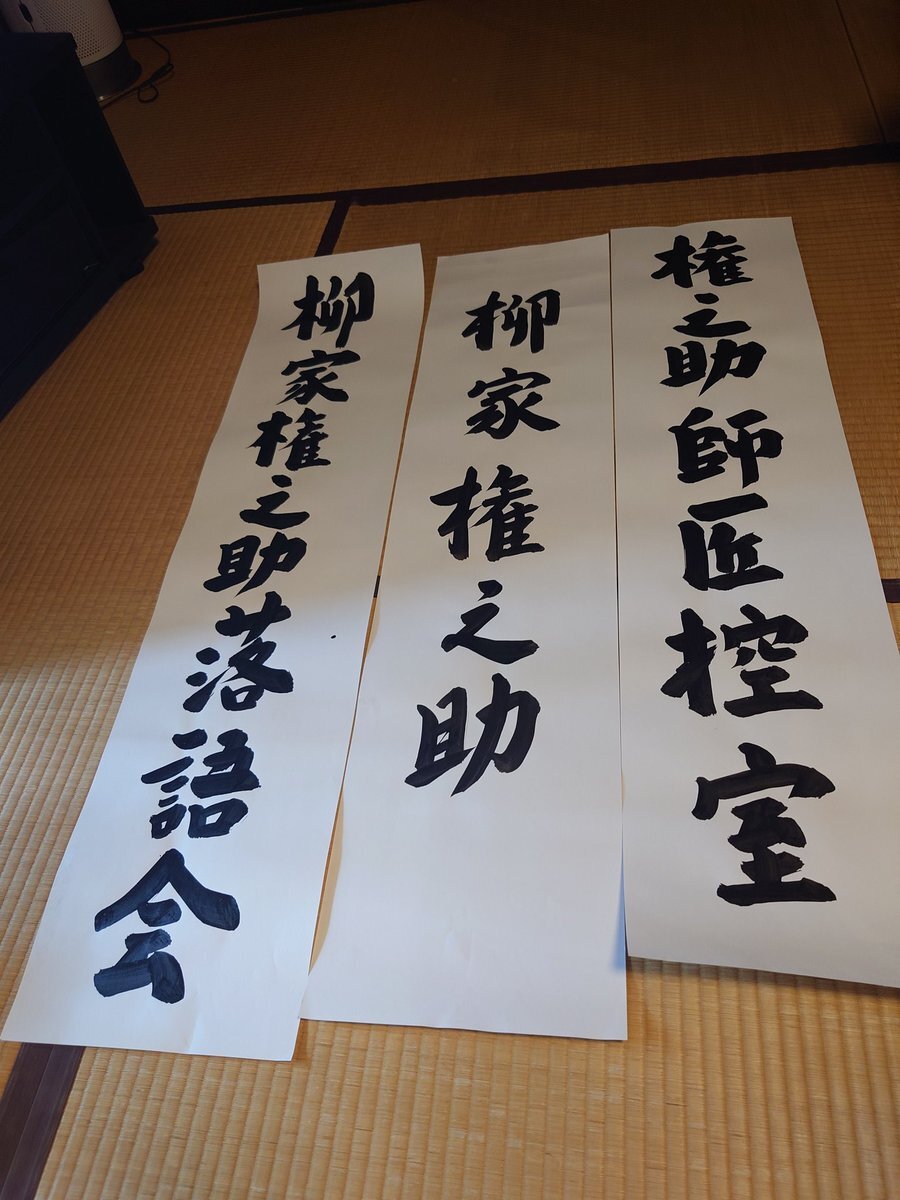 権之助師匠控室
柳家権之助
柳家権之助落語会